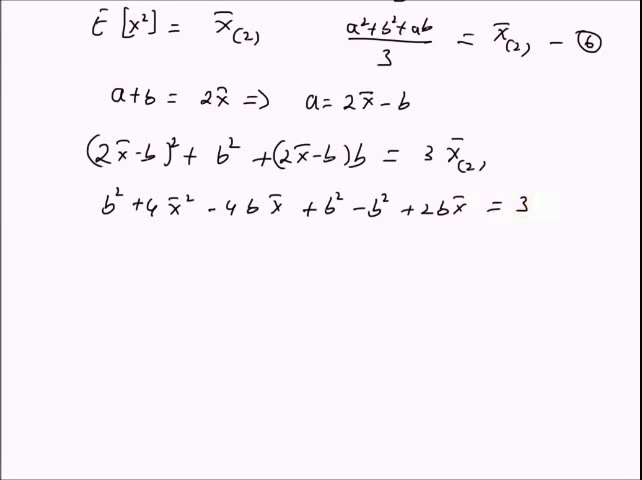 E[x²] = x̄₍₂₎   (a²+b²+ab)/3 = x̄₍₂₎ - ⑥
a+b = 2x̄ => a = 2x̄ - b
(2x̄-b)² + b² + (2x̄-b)b = 3 x̄₍₂₎
b² + 4x̄² - 4bx̄ + b² - b² + 2bx̄ = 3